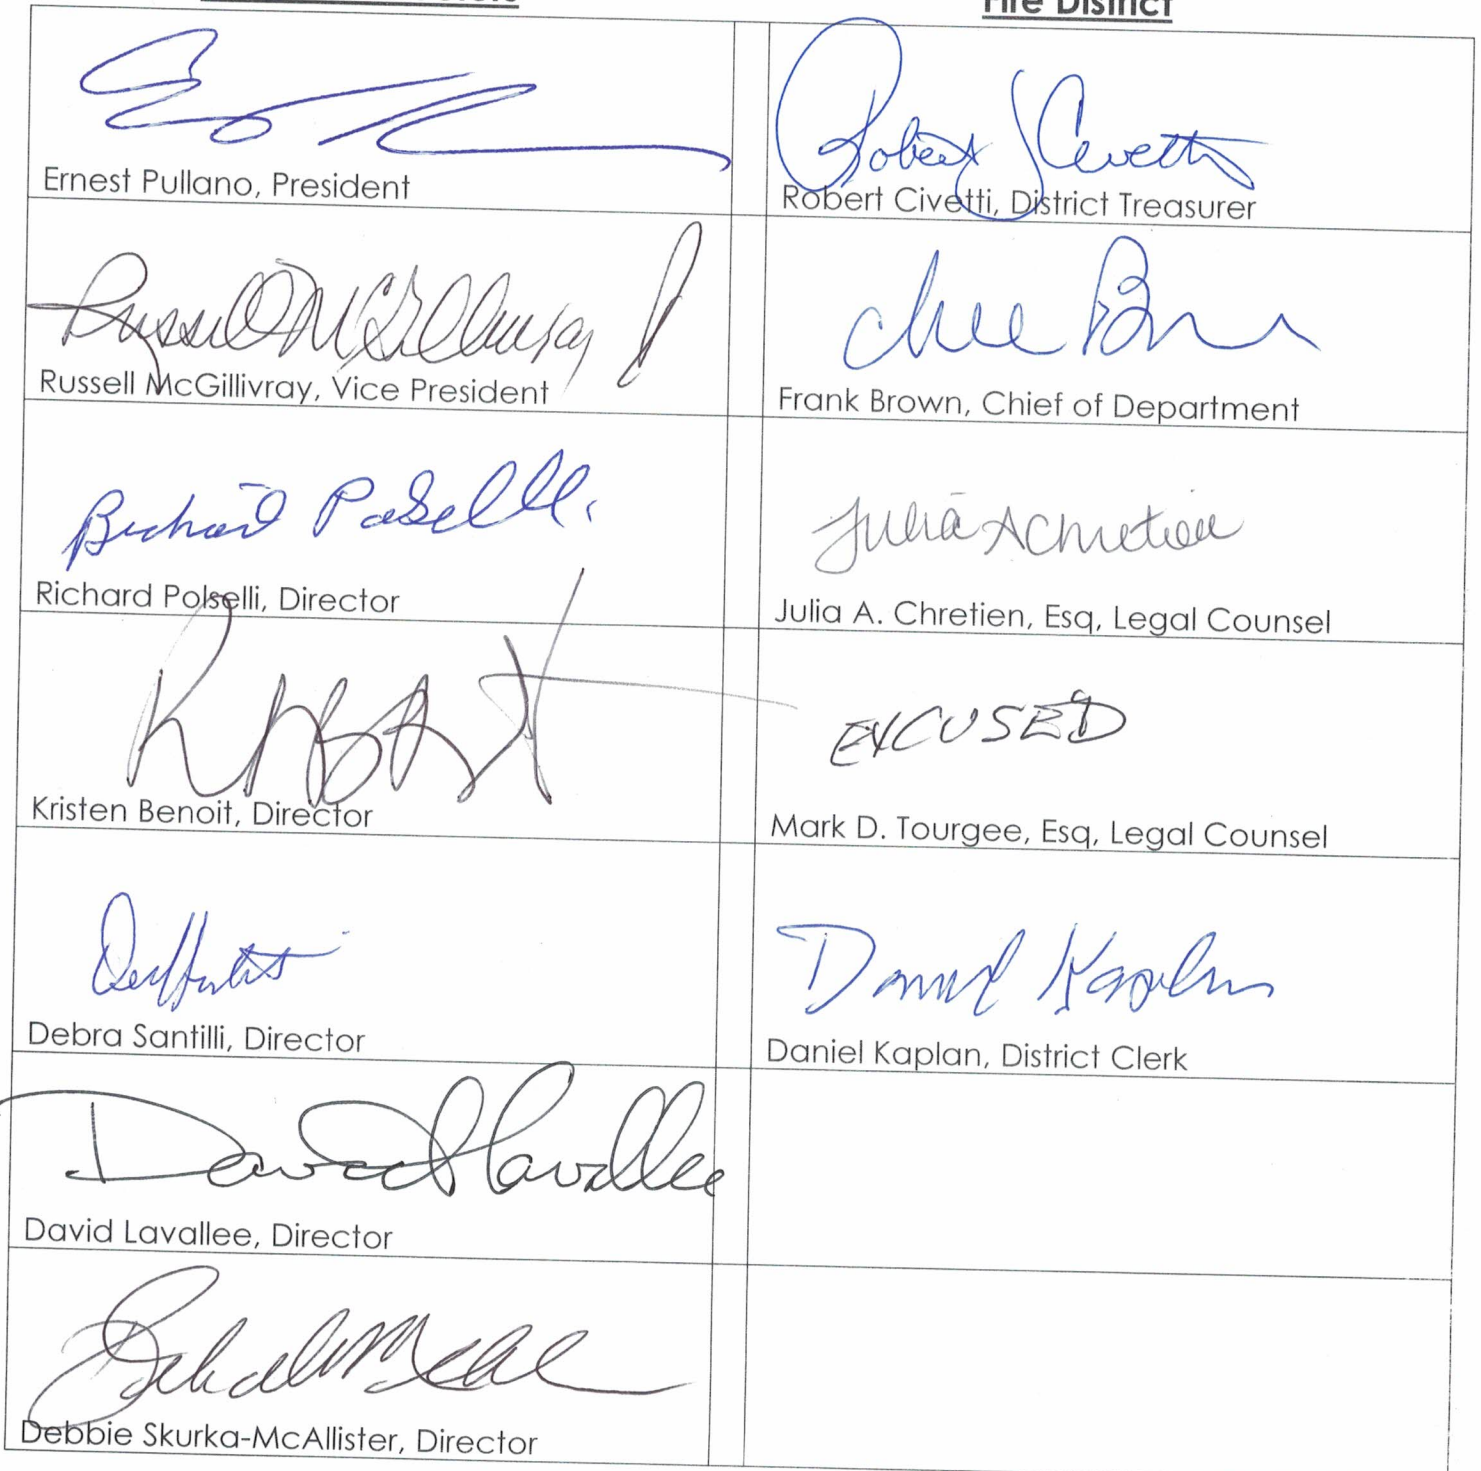 Fire District
Ernest Pullano, President
Robert Civetti
Robert Civetti, District Treasurer
Russell McGillivray
Russell McGillivray, Vice President
Chief Brown
Frank Brown, Chief of Department
Richard Polselli
Richard Polselli, Director
Julia A Chretien
Julia A. Chretien, Esq, Legal Counsel
Kristen Benoit, Director
EXCUSED
Mark D. Tourgee, Esq, Legal Counsel
Debra Santilli, Director
Daniel Kaplan
Daniel Kaplan, District Clerk
David Lavallee
David Lavallee, Director
Debbie Skurka-McAllister, Director